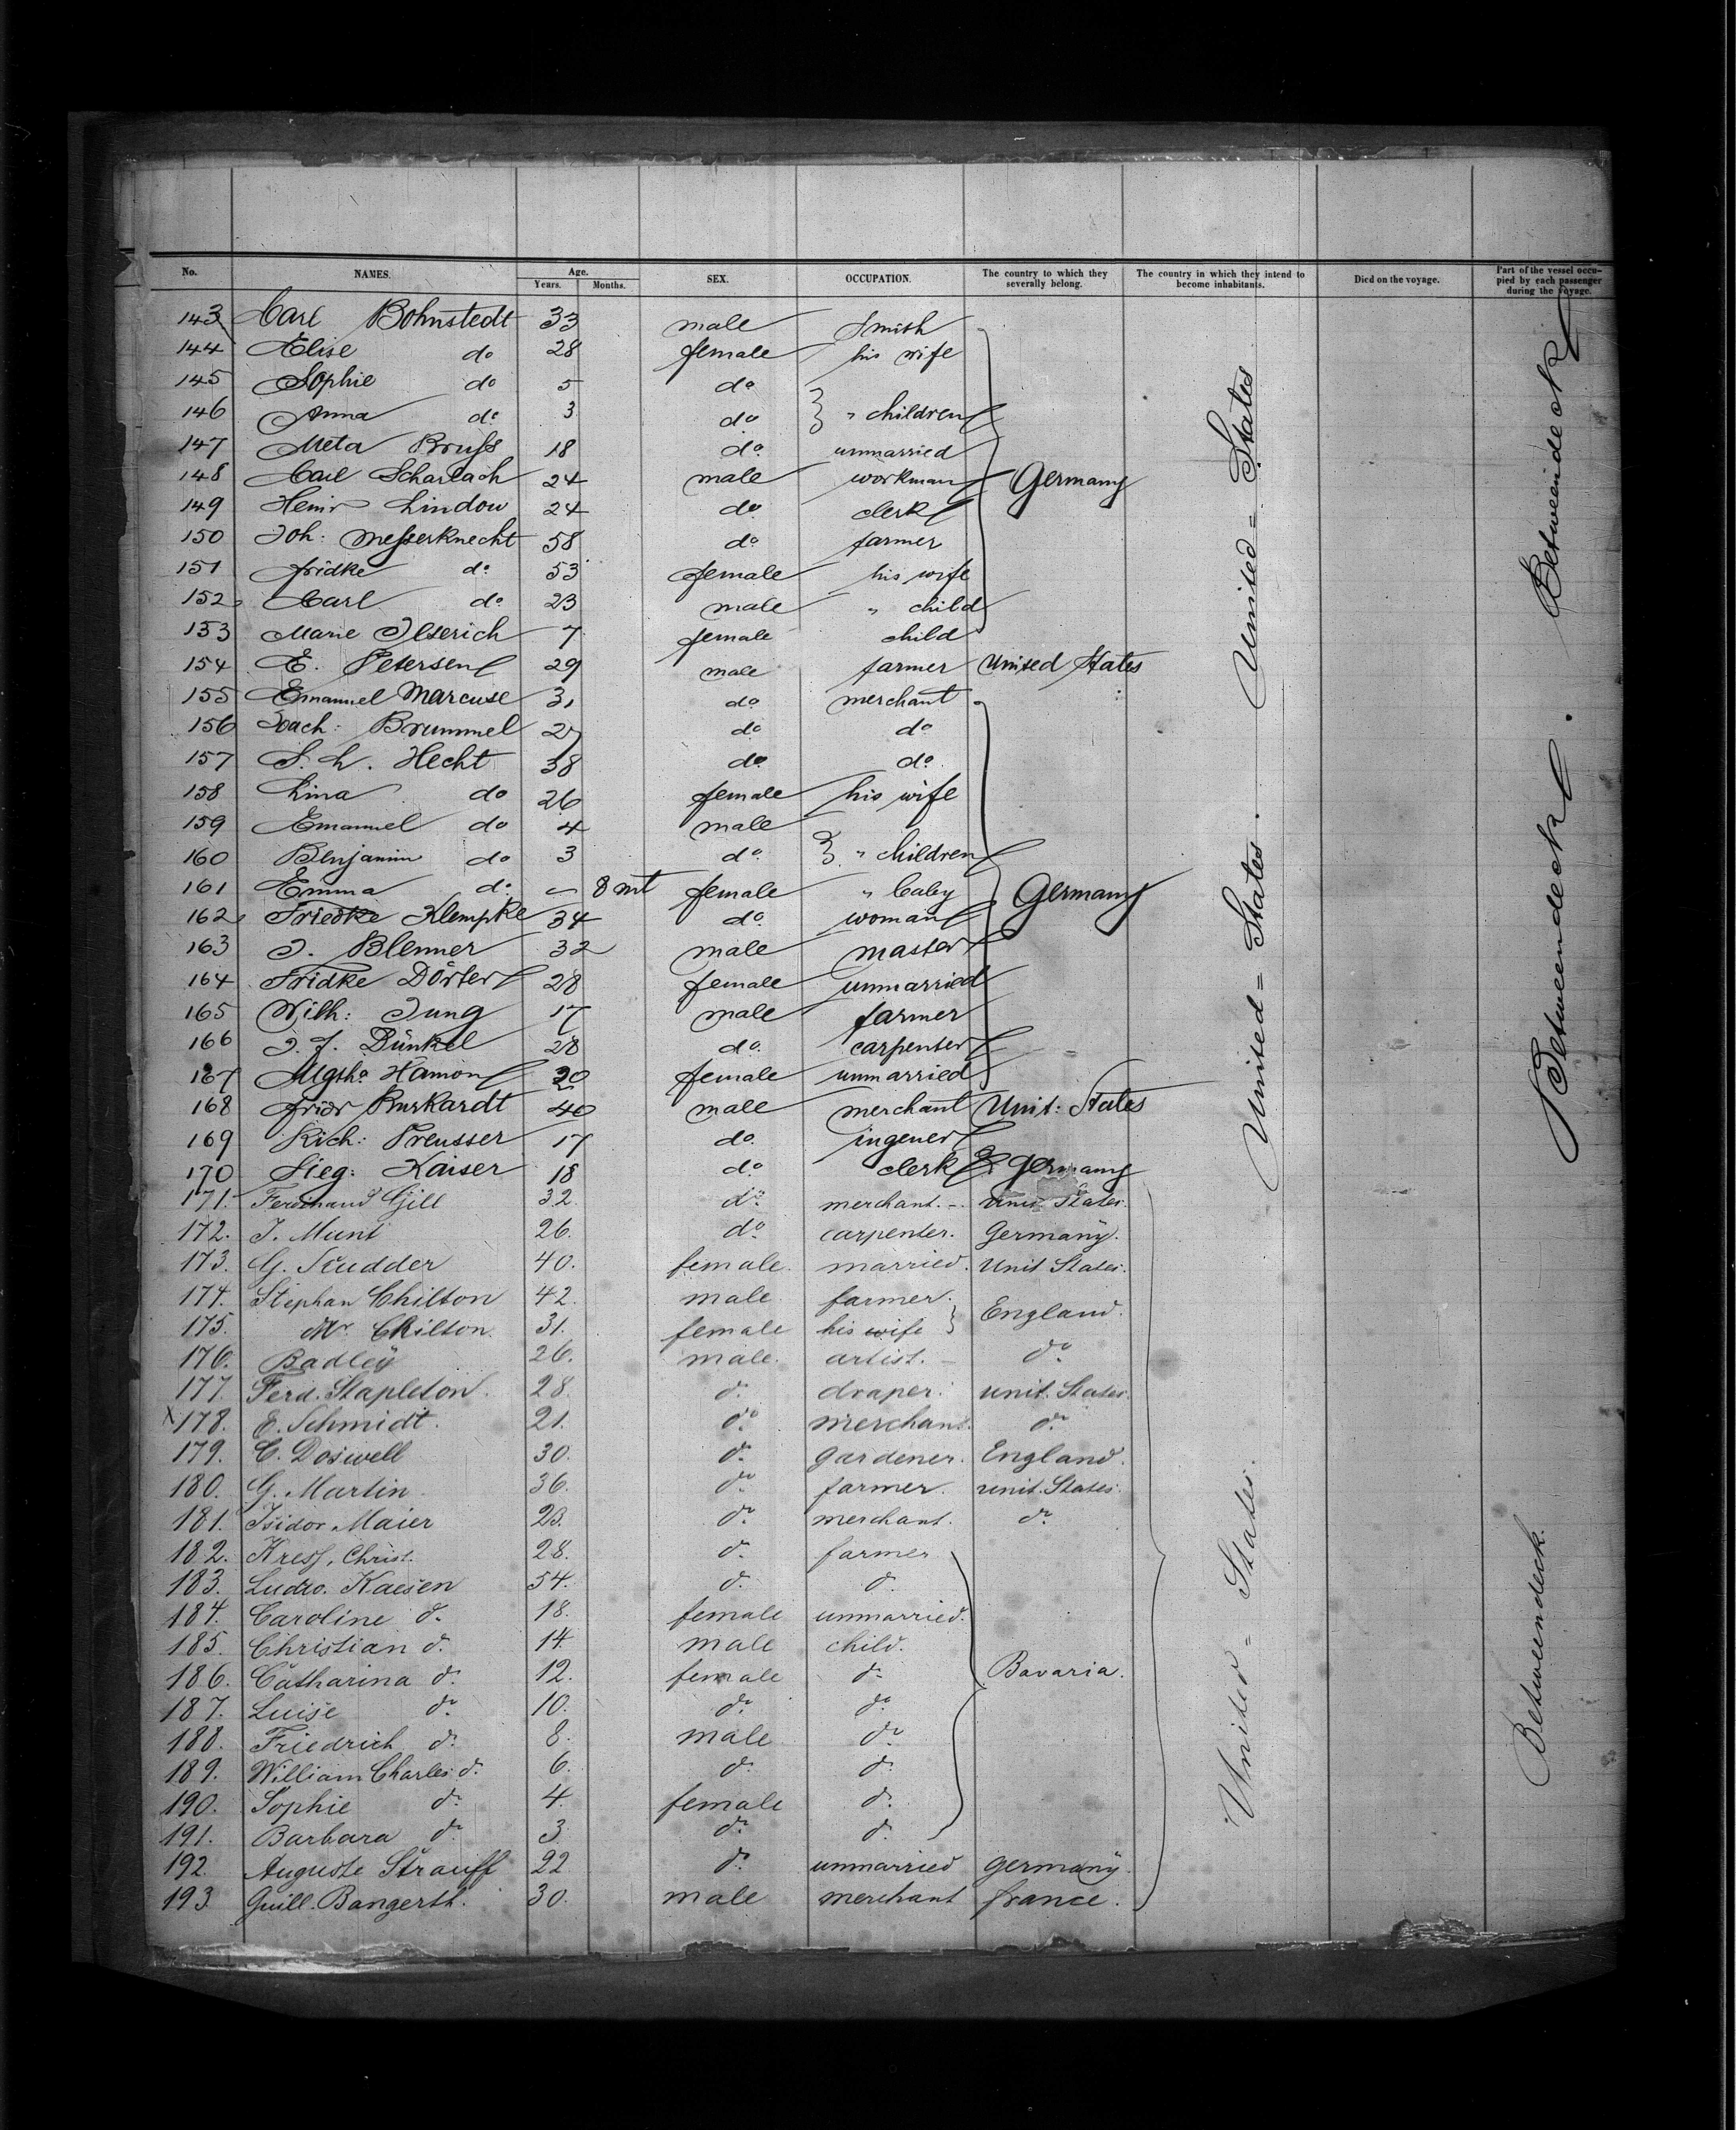 No. NAMES. Age. Years. Months. SEX. OCCUPATION. The country to which they severally belong. The country in which they intend to become inhabitants. Died on the voyage. Part of the vessel occupied by each passenger during the voyage.
143 Carl Bohnstedt 33 male Smith
144 Elise do 28 female his wife
145 Sophie do 5 do
146 Anna do 3 do " children
147 Meta Bruss 18 do unmarried
148 Carl Scharlach 24 male workman Germany
149 Heinr Lindow 24 do clerk
150 Joh: Messerknecht 58 do farmer
151 Fridke do 53 female his wife
152 Carl do 23 male " child
153 Marie Ilserich 7 female child
154 E. Petersen 29 male farmer United States
155 Emanuel Marcuse 31 do merchant
156 Joach: Brummel 27 do do
157 S. L. Hecht 38 do do
158 Lina do 26 female his wife
159 Emanuel do 4 male
160 Benjamin do 3 do " children
161 Emma do - 8 mt female " baby Germany
162 Friedke Klempke 34 do woman
163 J. Blenner 32 male master
164 Fridke Dörter 28 female unmarried
165 Wilh: Jung 17 male farmer
166 J. J. Dünkel 28 do carpenter
167 Hamon 20 female unmarried
168 Fridr Burkardt 40 male merchant Unit: States
169 Rich: Preusser 17 do ingener
170 Sieg: Kaiser 18 do clerk Germany
171. Ferdinand Gjill 32. do merchant. Unit States.
172. J. Munt 26. do carpenter. Germany.
173. G. Studder 40. female. married. Unit States.
174. Stephan Chilton 42. male farmer.
175. Mr. Chilton. 31. female his wife England.
176. Badley 26. male. artist. do
177. Ferd. Stapleton. 28. do draper. unit. States.
x 178. E. Schmidt. 21. do merchant. do
179. C. Doswell 30. do gardener. England.
180. G. Martin. 36. do farmer. unit. States.
181. Isidor Maier 23. do merchant. do
182. Kress, Christ. 28. do farmer
183. Ludw. Kaesen 54. do do
184. Caroline do 18. female unmarried.
185. Christian do 14 male child.
186. Catharina do 12. female do Bavaria.
187. Luise do 10. do do
188. Friedrich do 8. male do
189. William Charles do 6. do do
190. Sophie do 4. female do
191. Barbara do 3 do do
192. Auguste Strauss 22 do unmarried Germany.
193. Guill. Bangerth. 30. male merchant france.
United = States
United = States.
United = States.
Betweendeck
Betweendeck
Betweendeck.